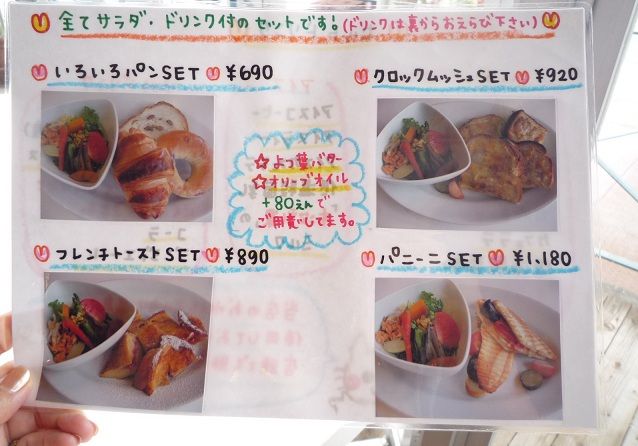 全てサラダ・ドリンク付のセットです!(ドリンクは裏からおえらび下さい)
いろいろパンSET ¥690
クロックムッシュSET ¥920
☆よつ葉バター
☆オリーブオイル
+80えんで
ご用意してます。
フレンチトーストSET ¥890
パニーニSET ¥1,180
コーラ